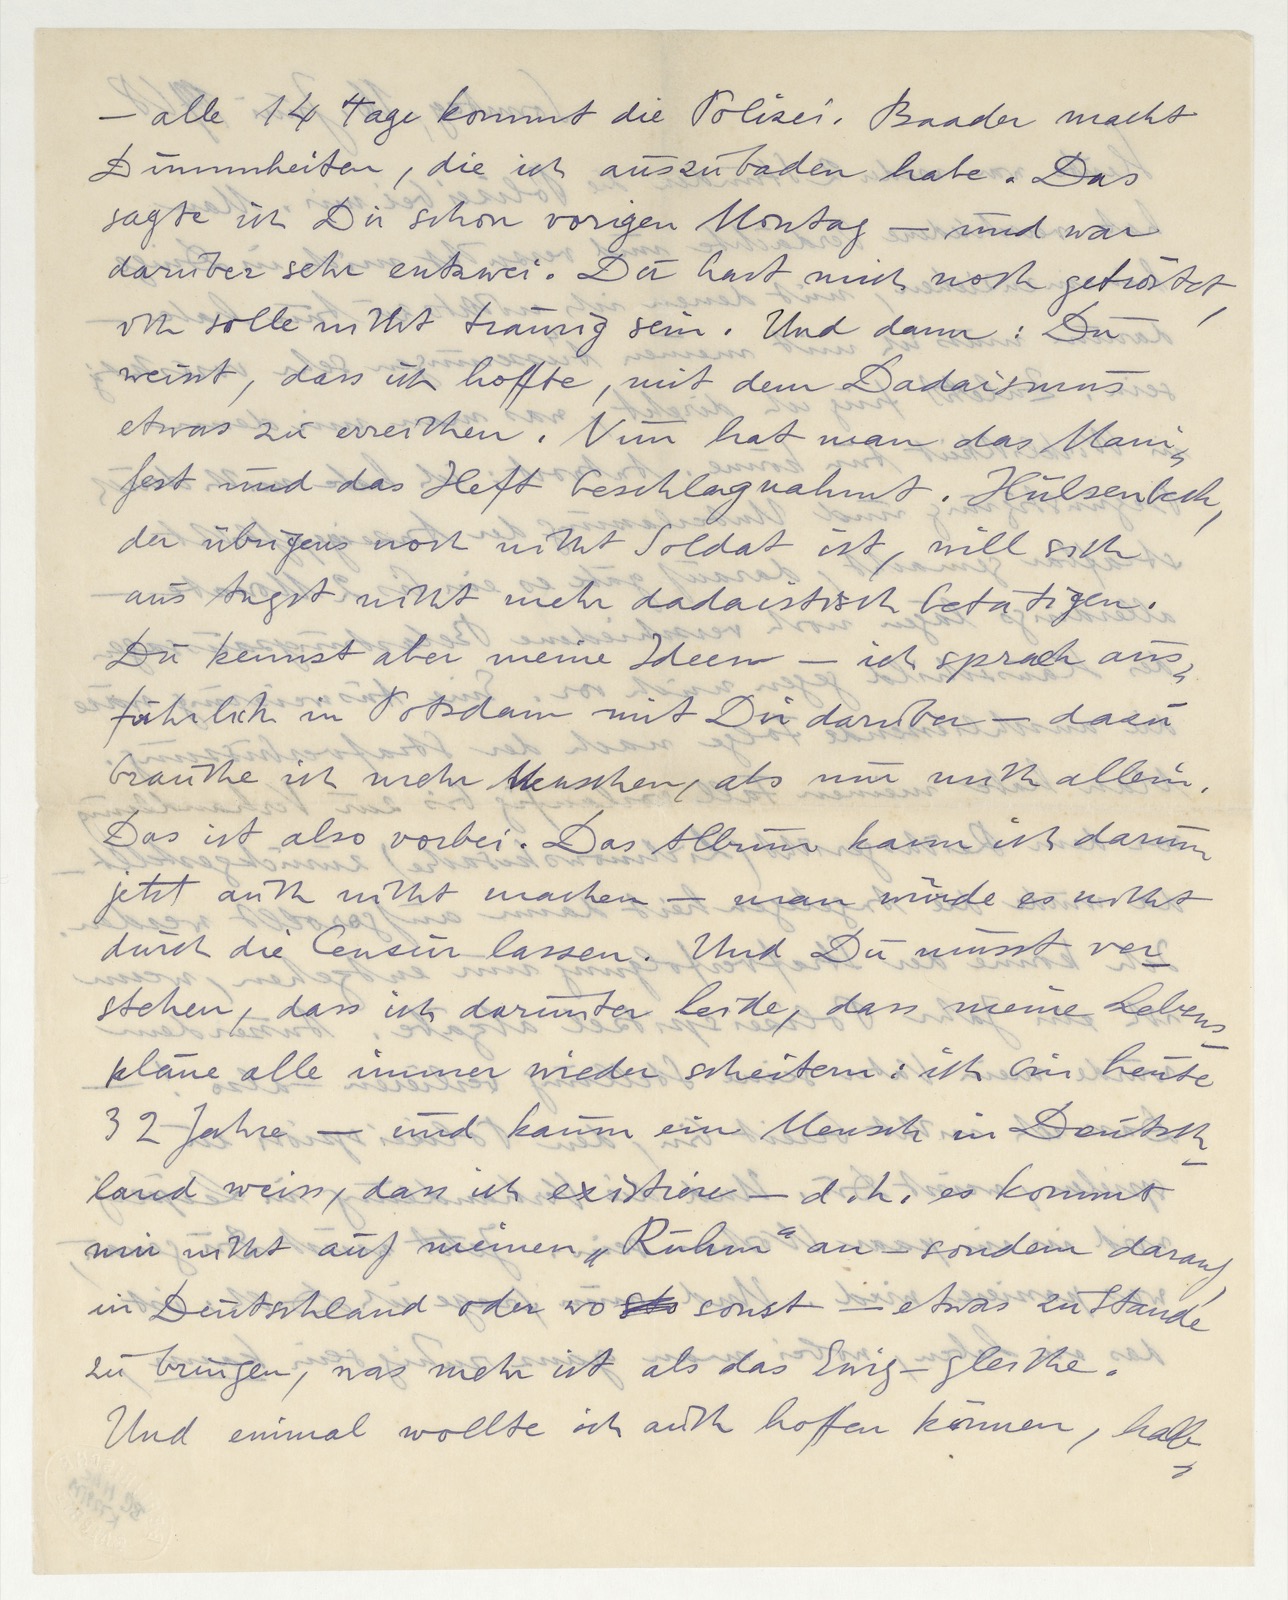 – alle 14 Tage kommt die Polizei. Baader macht
Dummheiten, die ich auszubaden habe. Das
sagte ich Dir schon vorigen Montag – und war
darüber sehr entzwei. Du hast mich noch getröstet,
ich solle nicht traurig sein. Und dann: Du
weisst, dass ich hoffte, mit dem Dadaismus
etwas zu erreichen. Nun hat man das Mani-
fest und das Heft beschlagnahmt. Hülsenbeck,
der übrigens noch nicht Soldat ist, will sich
aus Angst nicht mehr dadaistisch betätigen.
Du kennst aber meine Ideen – ich sprach aus-
führlich in Potsdam mit Dir darüber – dazu
brauche ich mehr Menschen, als nur mich allein.
Das ist also vorbei. Das Album kann ich darum
jetzt auch nicht machen – man würde es nicht
durch die Censur lassen. Und Du musst ver-
stehen, dass ich darunter leide, dass meine Lebens-
pläne alle immer wieder scheitern: ich bin heute
32 Jahre – und kaum ein Mensch in Deutsch-
land weiss, dass ich existiere – d.h. es kommt
mir nicht auf meinen „Ruhm“ an – sondern darauf,
in Deutschland oder wo sonst – etwas zu Stande
zu bringen, was mehr ist als das Ewig-gleiche.
Und einmal wollte ich auch hoffen können, halb-